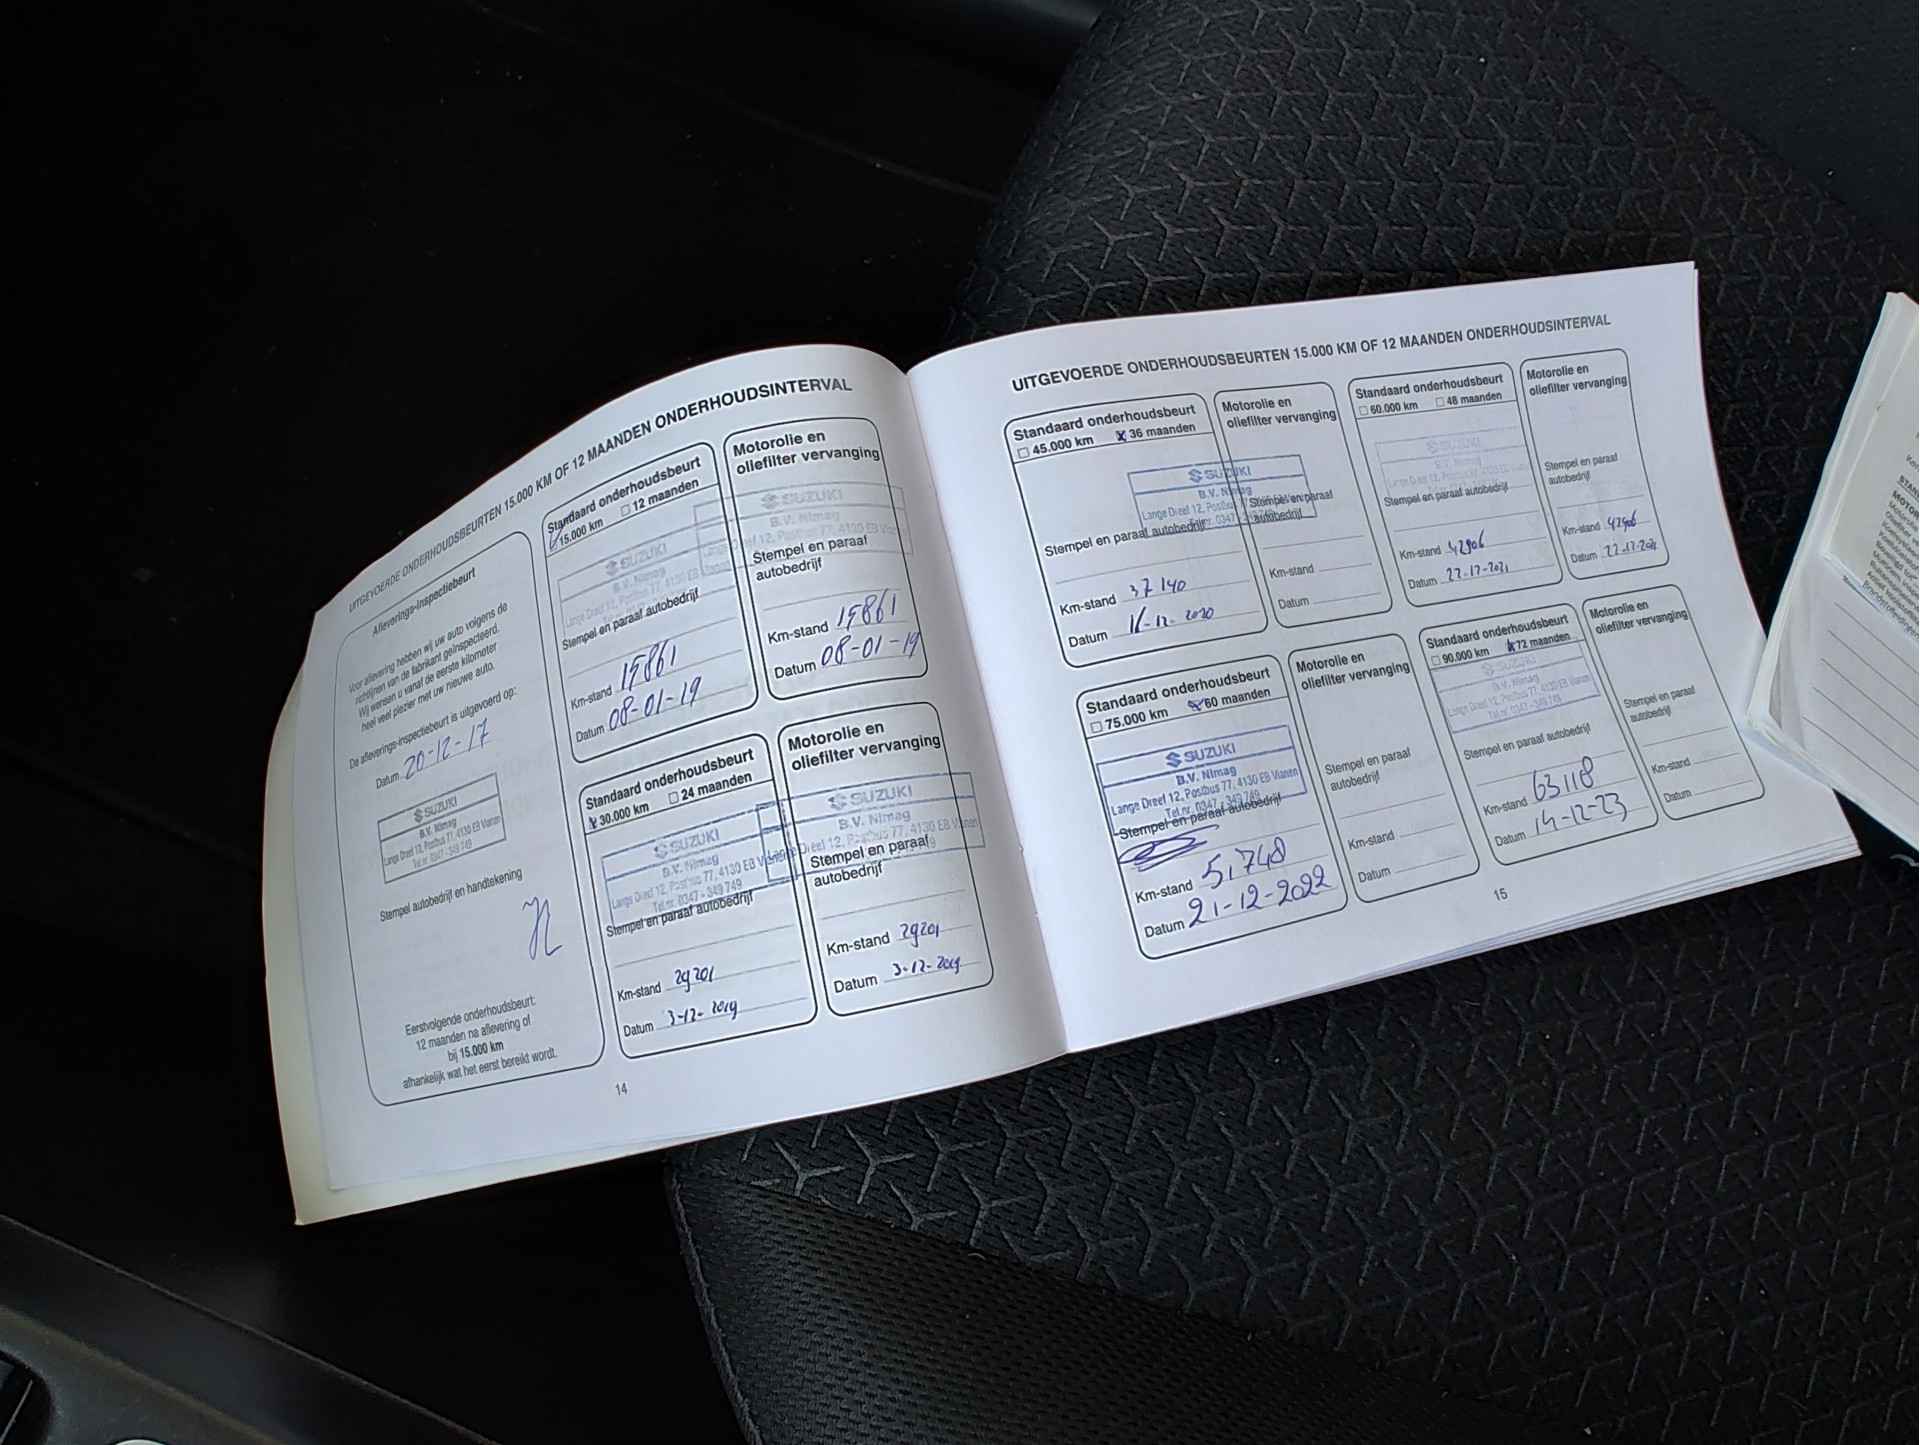 UITGEVOERDE ONDERHOUDSBEURTEN 15.000 KM OF 12 MAANDEN ONDERHOUDSINTERVAL
Afleverings-inspectiebeurt
Voor aflevering hebben wij uw auto volgens de
richtlijnen van de fabrikant geïnspecteerd.
Wij wensen u vanaf de eerste kilometer
heel veel plezier met uw nieuwe auto.
De afleverings-inspectiebeurt is uitgevoerd op:
Datum 20-12-17
SUZUKI
B.V. Nimag
Lange Dreef 12, Postbus 77, 4130 EB Vianen
Tel.nr. 0347 - 349 749
Stempel autobedrijf en handtekening
Eerstvolgende onderhoudsbeurt:
12 maanden na aflevering of
bij 15.000 km
afhankelijk wat het eerst bereikt wordt.
Standaard onderhoudsbeurt
15.000 km 12 maanden
SUZUKI
B.V. Nimag
Lange Dreef 12, Postbus 77, 4130 EB
Stempel en paraaf autobedrijf
Km-stand 15861
Datum 08-01-19
Motorolie en
oliefilter vervanging
SUZUKI
B.V. Nimag
Lange Dreef 12, Postbus 77, 4130 EB Vianen
Stempel en paraaf
autobedrijf
Km-stand 15861
Datum 08-01-19
Standaard onderhoudsbeurt
30.000 km 24 maanden
SUZUKI
B.V. Nimag
Lange Dreef 12, Postbus 77, 4130 EB Vianen
Tel.nr. 0347 - 349 749
Stempel en paraaf autobedrijf
Km-stand 29201
Datum 3-12-2019
Motorolie en
oliefilter vervanging
SUZUKI
B.V. Nimag
Lange Dreef 12, Postbus 77, 4130 EB Vianen
Stempel en paraaf
autobedrijf
Km-stand 29201
Datum 3-12-2019
14
UITGEVOERDE ONDERHOUDSBEURTEN 15.000 KM OF 12 MAANDEN ONDERHOUDSINTERVAL
Standaard onderhoudsbeurt
45.000 km 36 maanden
SUZUKI
B.V. Nimag
Lange Dreef 12, Postbus
Stempel en paraaf autobedrijf
Km-stand 37140
Datum 16-12-2020
Motorolie en
oliefilter vervanging
Stempel en paraaf
autobedrijf
Km-stand
Datum
Standaard onderhoudsbeurt
60.000 km 48 maanden
SUZUKI
B.V. Nimag
Stempel en paraaf autobedrijf
Km-stand 42906
Datum 22-12-2021
Motorolie en
oliefilter vervanging
Stempel en paraaf
autobedrijf
Km-stand 42906
Datum 22-12-2021
Standaard onderhoudsbeurt
75.000 km 60 maanden
SUZUKI
B.V. Nimag
Lange Dreef 12, Postbus 77, 4130 EB Vianen
Tel.nr. 0347 - 349 749
Stempel en paraaf autobedrijf
Km-stand 51748
Datum 21-12-2022
Motorolie en
oliefilter vervanging
Stempel en paraaf
autobedrijf
Km-stand
Datum
Standaard onderhoudsbeurt
90.000 km 72 maanden
SUZUKI
B.V. Nimag
Lange Dreef 12, Postbus 77, 4130 EB Vianen
Tel.nr. 0347 - 349 749
Stempel en paraaf autobedrijf
Km-stand 63118
Datum 14-12-23
Motorolie en
oliefilter vervanging
Stempel en paraaf
autobedrijf
Km-stand
Datum
15